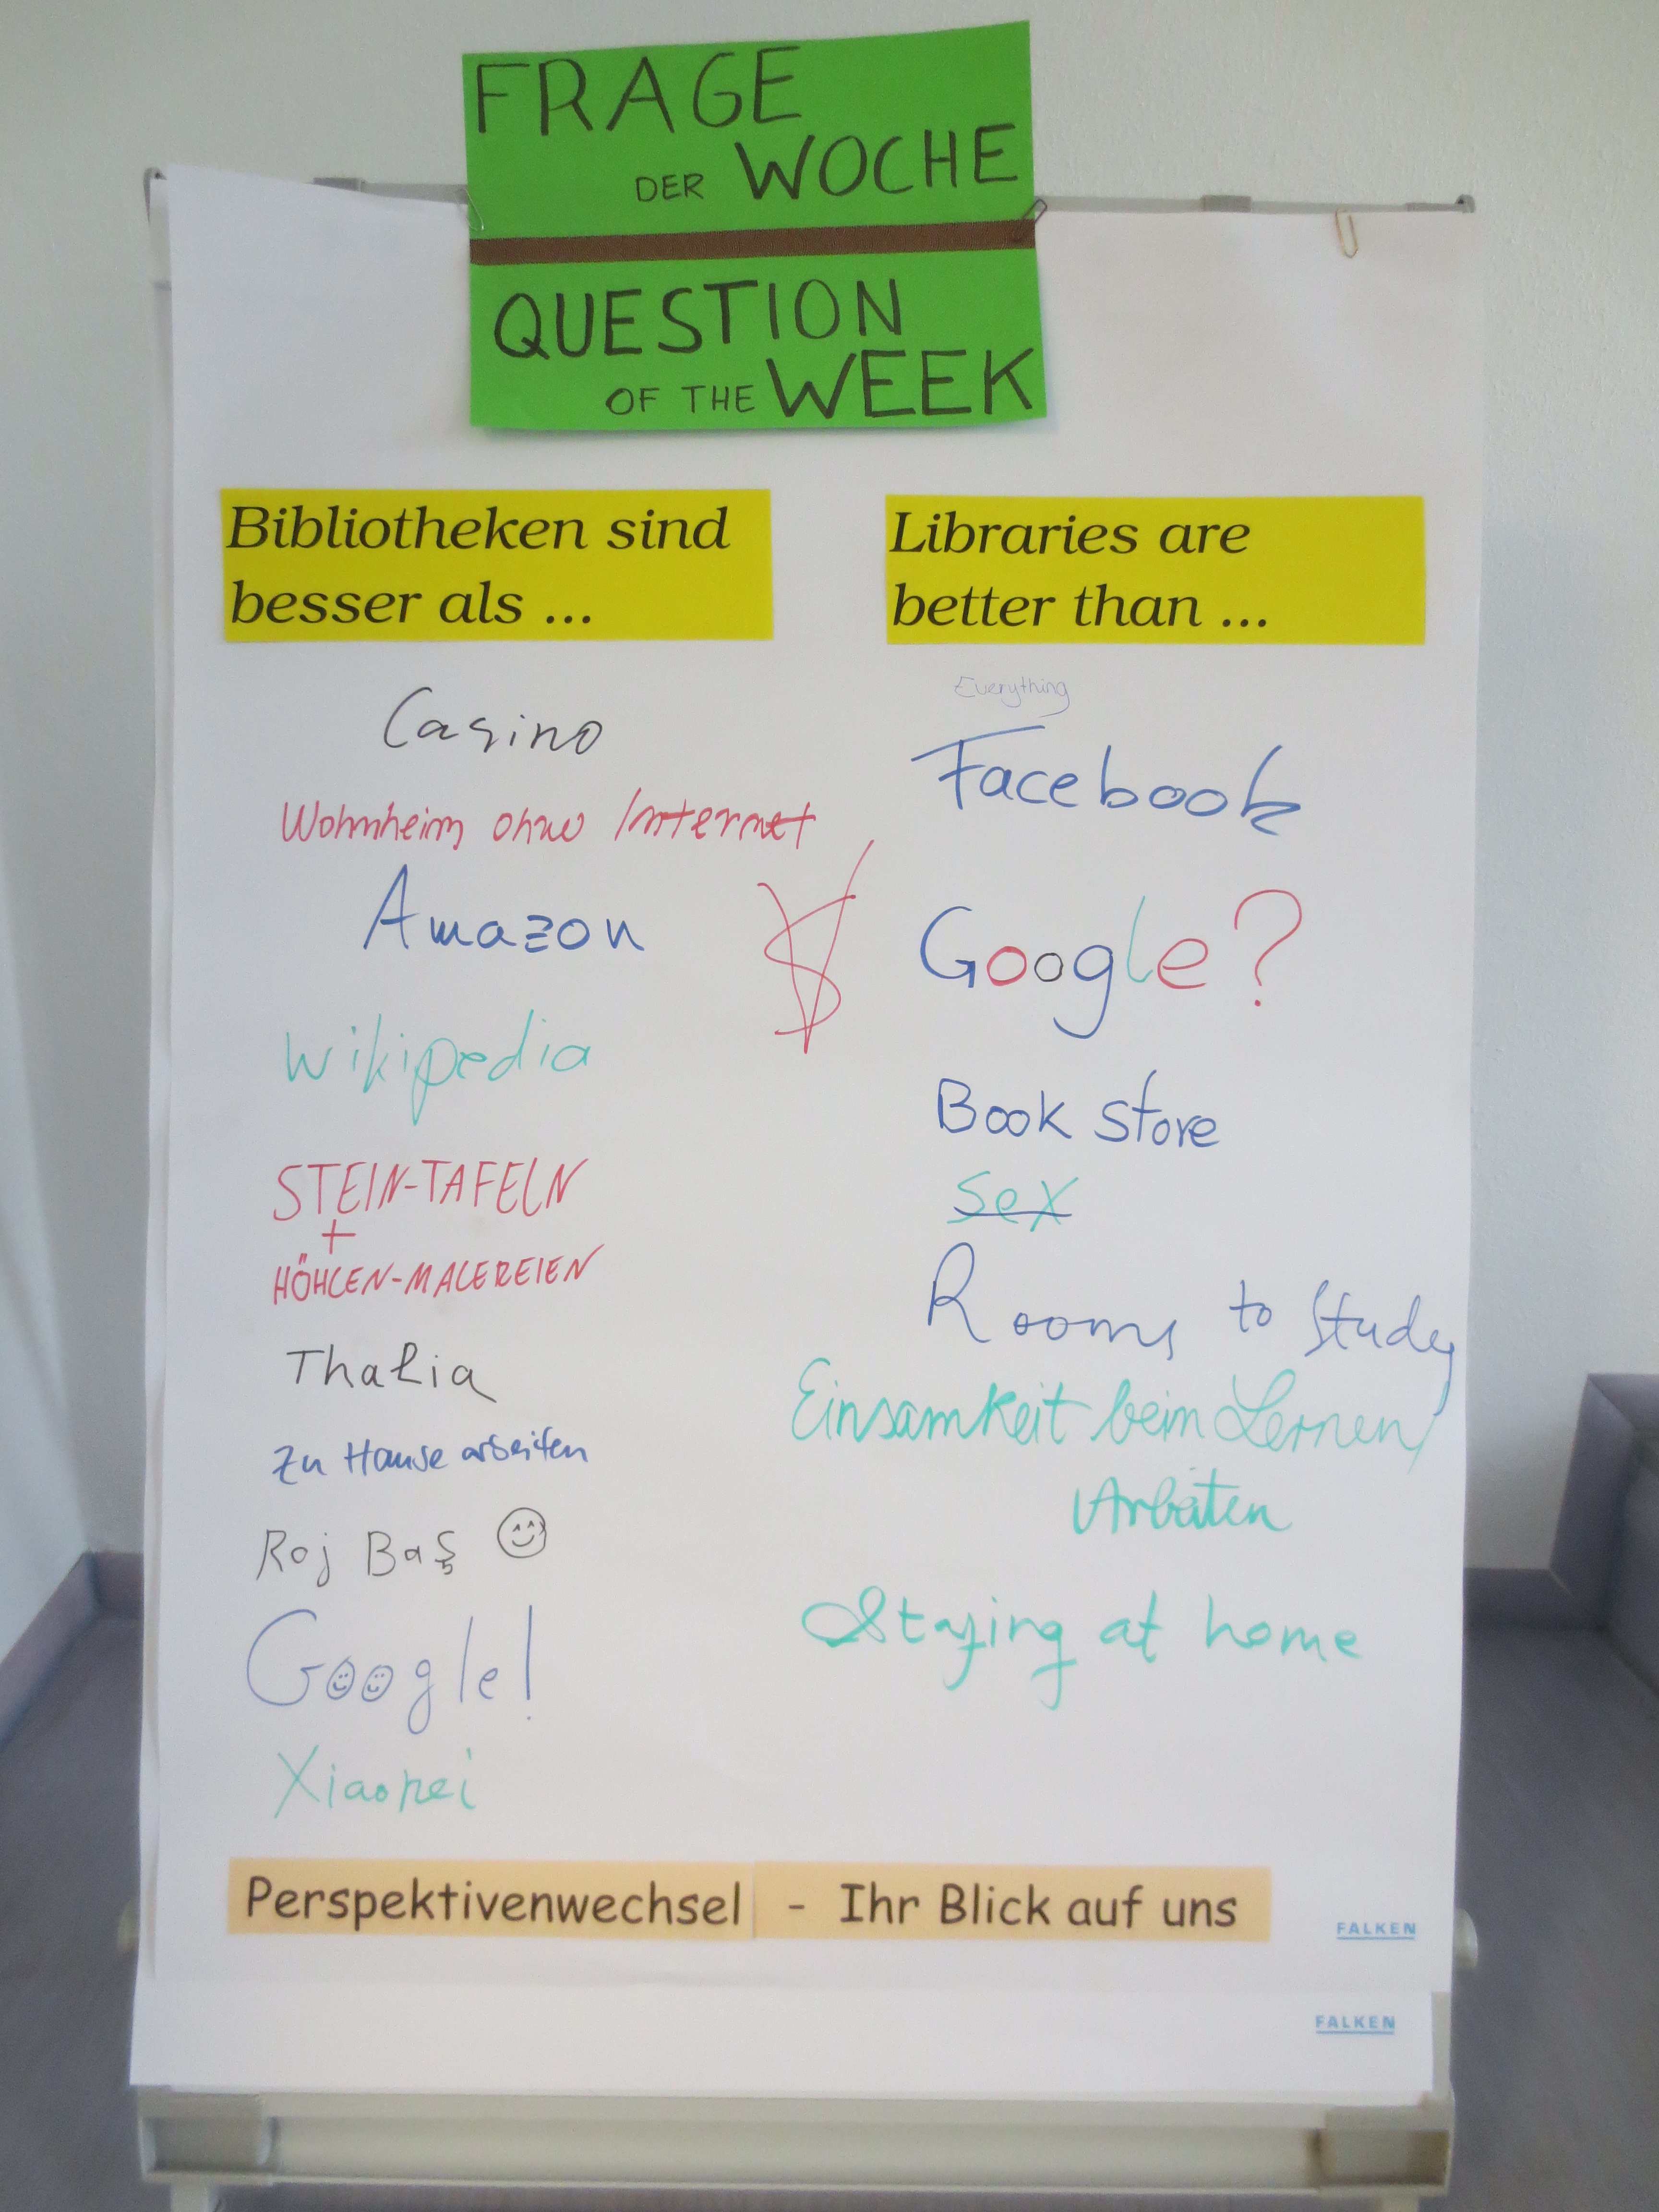 FRAGE
DER WOCHE
QUESTION
OF THE WEEK
Bibliotheken sind
besser als ...
Casino
Wohnheim ohne Internet
Amazon
$
Wikipedia
STEIN-TAFELN
+
HÖHLEN-MALEREIEN
Thalia
Zu Hause arbeiten
Roj Baş
Google!
Libraries are
better than ...
Everything
Facebook
Google?
Book Store
Sex
Rooms to Study
Einsamkeit beim Lernen/
Arbeiten
Staying at home
Perspektivenwechsel - Ihr Blick auf uns
FALKEN
FALKEN